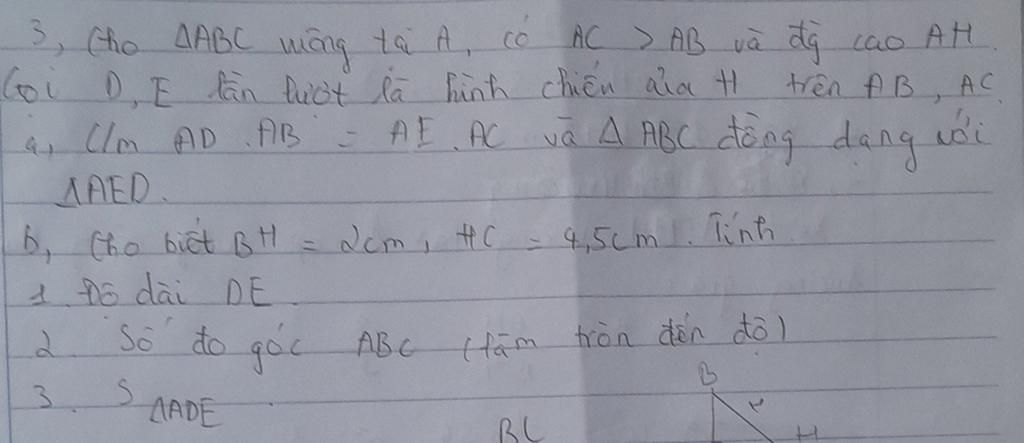 3, Cho ΔABC vuông tại A, có AC > AB và đg cao AH.
Gọi D, E lần lượt là hình chiếu của H trên AB, AC
a, C/m AD . AB = AE . AC và Δ ABC đồng dạng với
ΔAED.
b, Cho biết BH = 2cm, HC = 4,5cm. Tính
1. Độ dài DE
2. Số đo góc ABC (làm tròn đến độ)
3. S ΔADE
B
BC
H